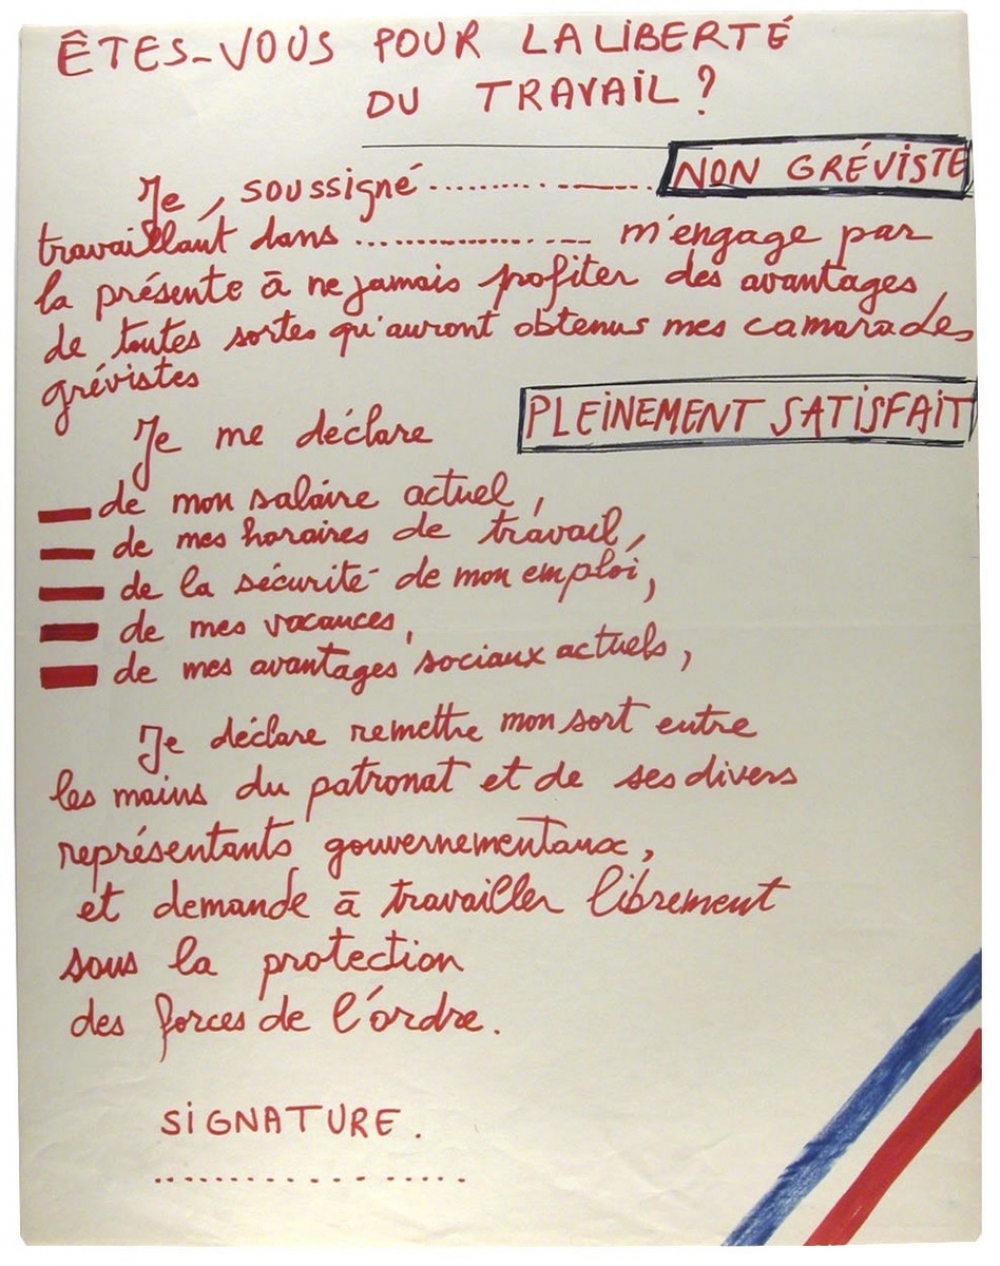 ÊTES-VOUS POUR LA LIBERTÉ
DU TRAVAIL ?
Je, soussigné .................... NON GRÉVISTE
travaillant dans .................... m'engage par
la présente à ne jamais profiter des avantages,
de toutes sortes qu'auront obtenus mes camarades
grévistes
Je me déclare PLEINEMENT SATISFAIT
— de mon salaire actuel,
— de mes horaires de travail,
— de la sécurité de mon emploi,
— de mes vacances,
— de mes avantages sociaux actuels,
Je déclare remettre mon sort entre
les mains du patronat et de ses divers
représentants gouvernementaux,
et demande à travailler librement
sous la protection
des forces de l'ordre.
SIGNATURE.
....................